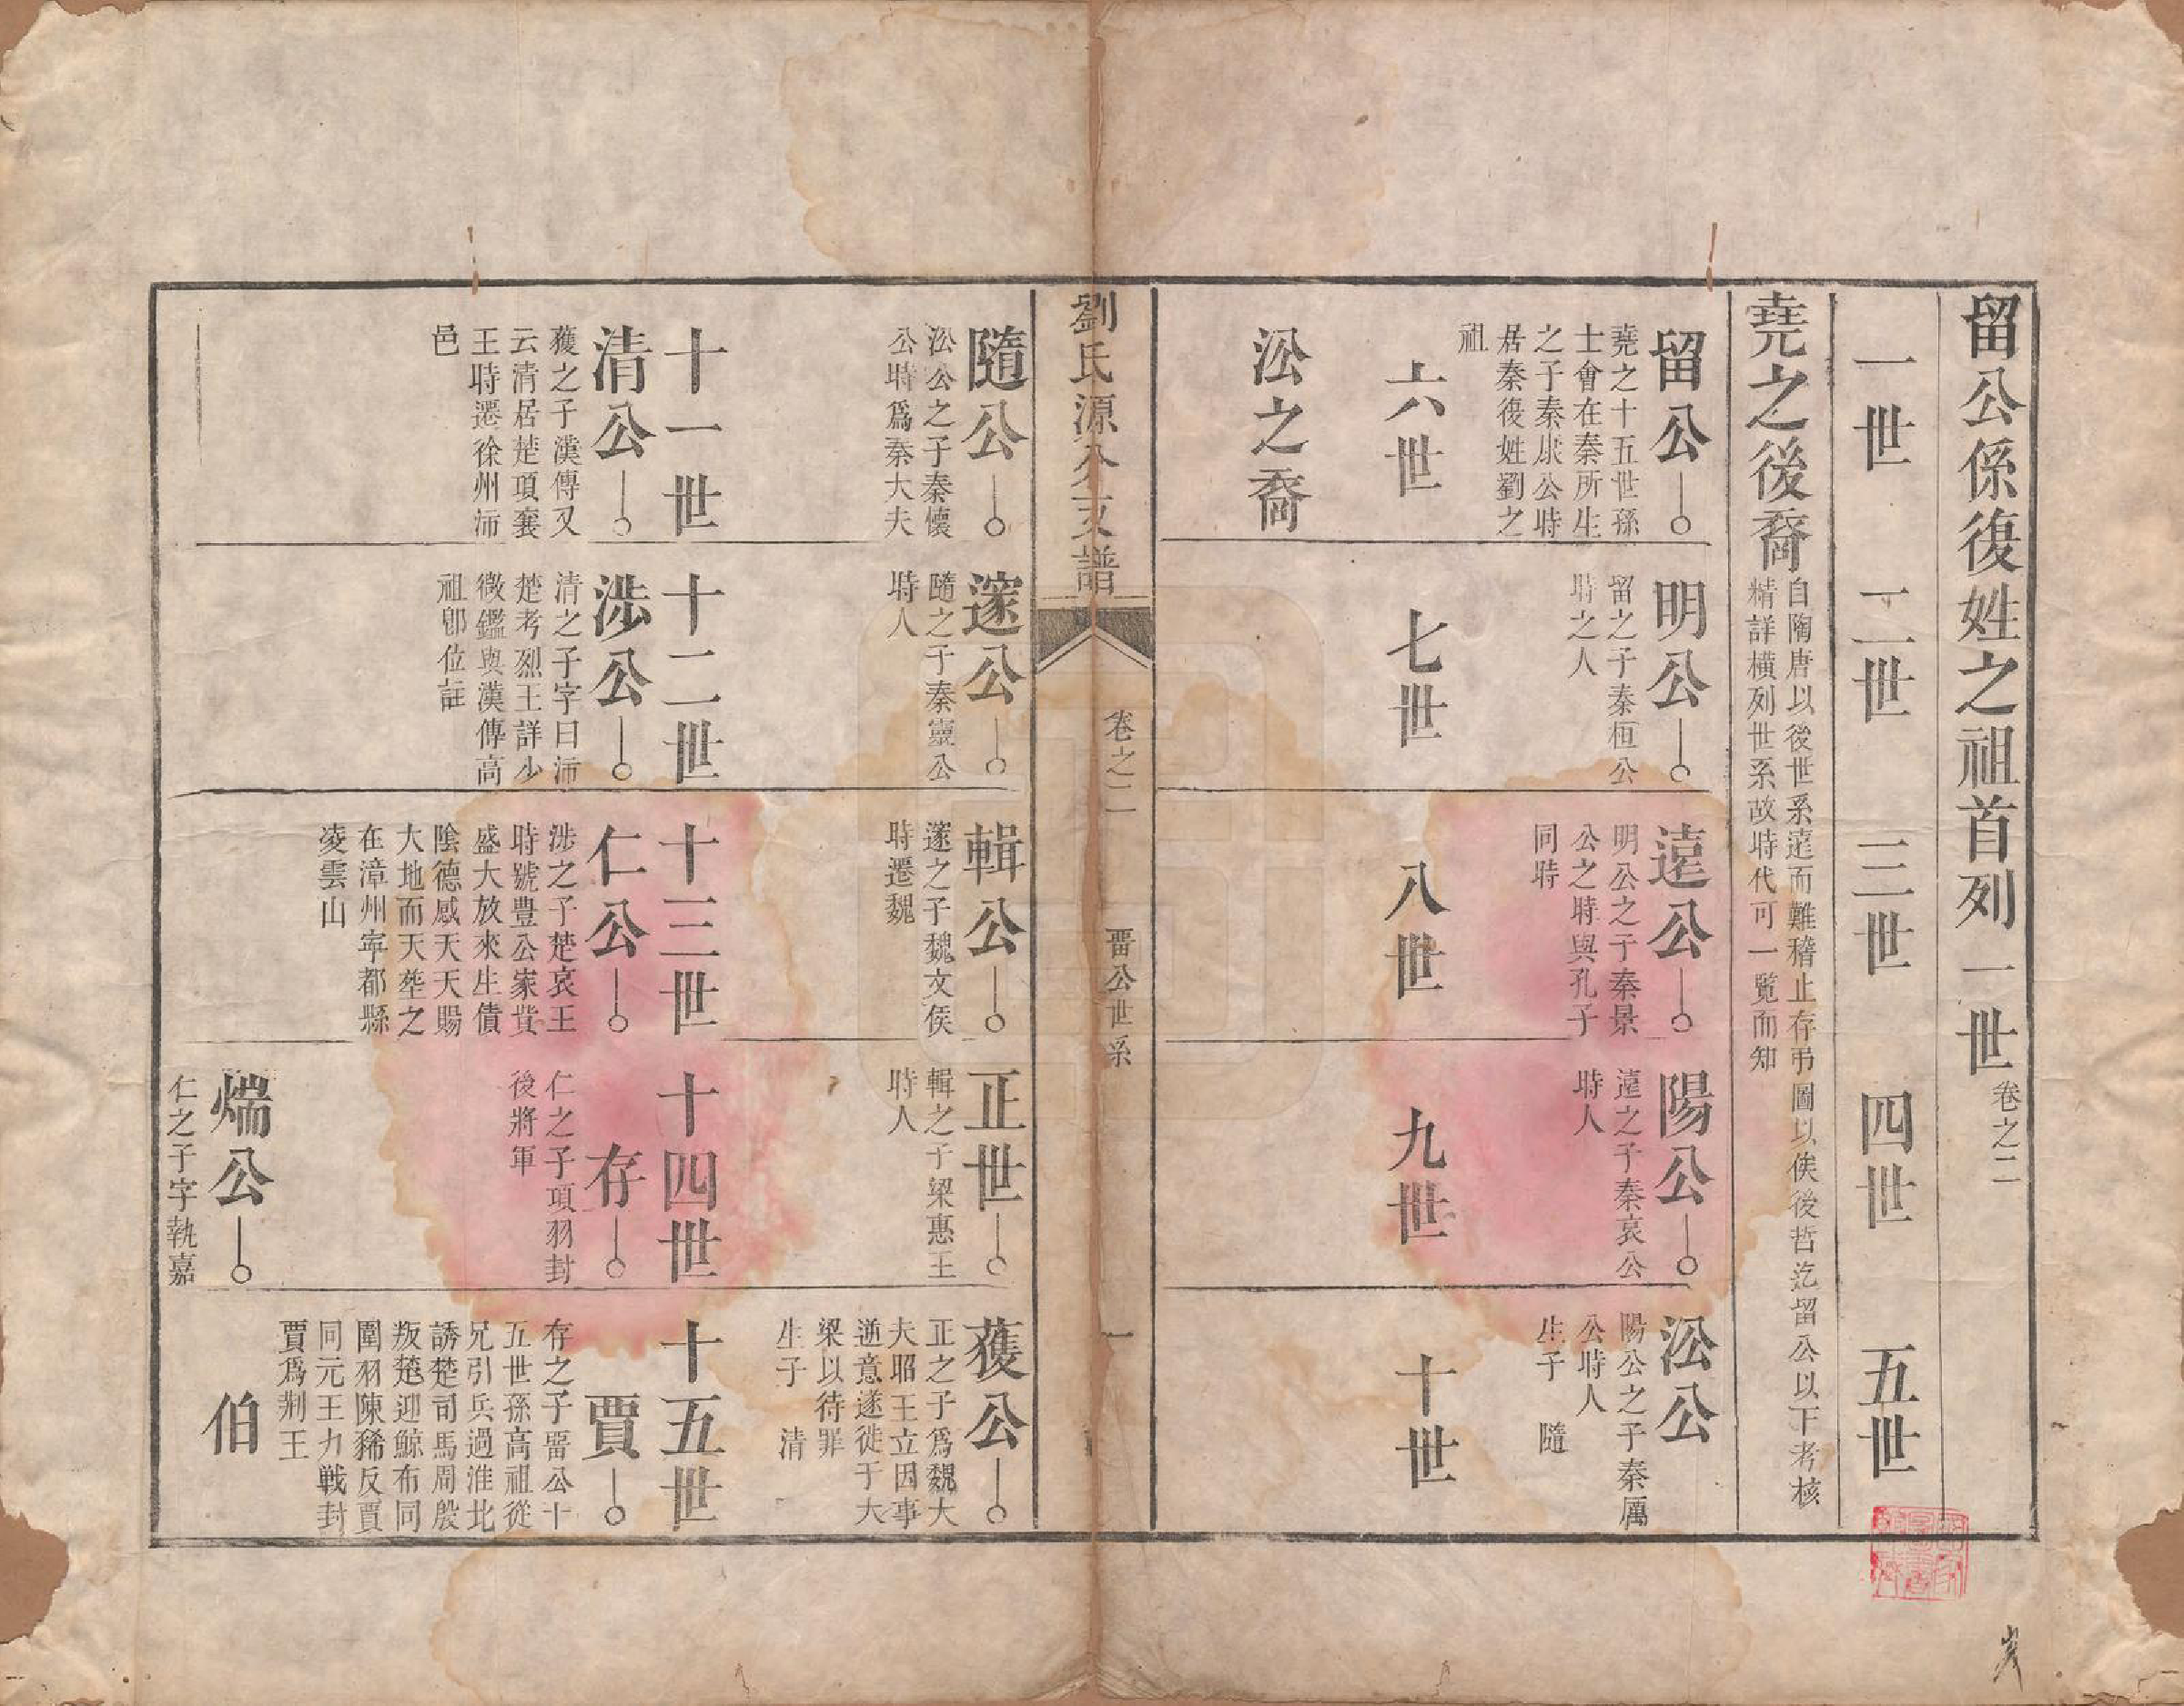 留公係復姓之祖首列一世 卷之二
一世 二世 三世 四世 五世
堯之後裔
自陶唐以後世系遠而難稽止存弔圖以俟後哲迄留公以下考核
精詳橫列世系故時代可一覽而知
留公
堯之十五世孫
士會在秦所生
之子秦康公時
居秦復姓劉之
祖
明公
留之子秦桓公
時之人
遠公
明公之子秦景
公之時與孔子
同時
陽公
遠之子秦哀公
時人
㳂公
陽公之子秦厲
公時人
生子 隨
六世 七世 八世 九世 十世
㳂之裔
劉氏源分支譜 卷之二 畱公世系 一
隨公
㳂公之子秦懷
公時爲秦大夫
邃公
隨之子秦靈公
時人
輯公
邃之子魏文侯
時遷魏
正世
輯之子梁惠王
時人
獲公
正之子爲魏大
夫昭王立因事
逆意遂徙于大
梁以待罪
生子 清
十一世 十二世 十三世 十四世 十五世
清公
獲之子漢傳又
云清居楚項襄
王時遷徐州沛
邑
涉公
清之子字曰沛
楚考烈王詳少
微鑑與漢傳高
祖卽位註
仁公
涉之子楚哀王
時號豊公家貲
盛大放來生債
陰德感天天賜
大地而天塟之
在漳州寧都縣
凌雲山
存
仁之子項羽封
後將軍
賈
存之子畱公十
五世孫高祖從
兄引兵過淮北
誘楚司馬周殷
叛楚迎鯨布同
圍羽陳豨反賈
同元王力戰封
賈爲荆王
煓公
仁之子字執嘉
伯